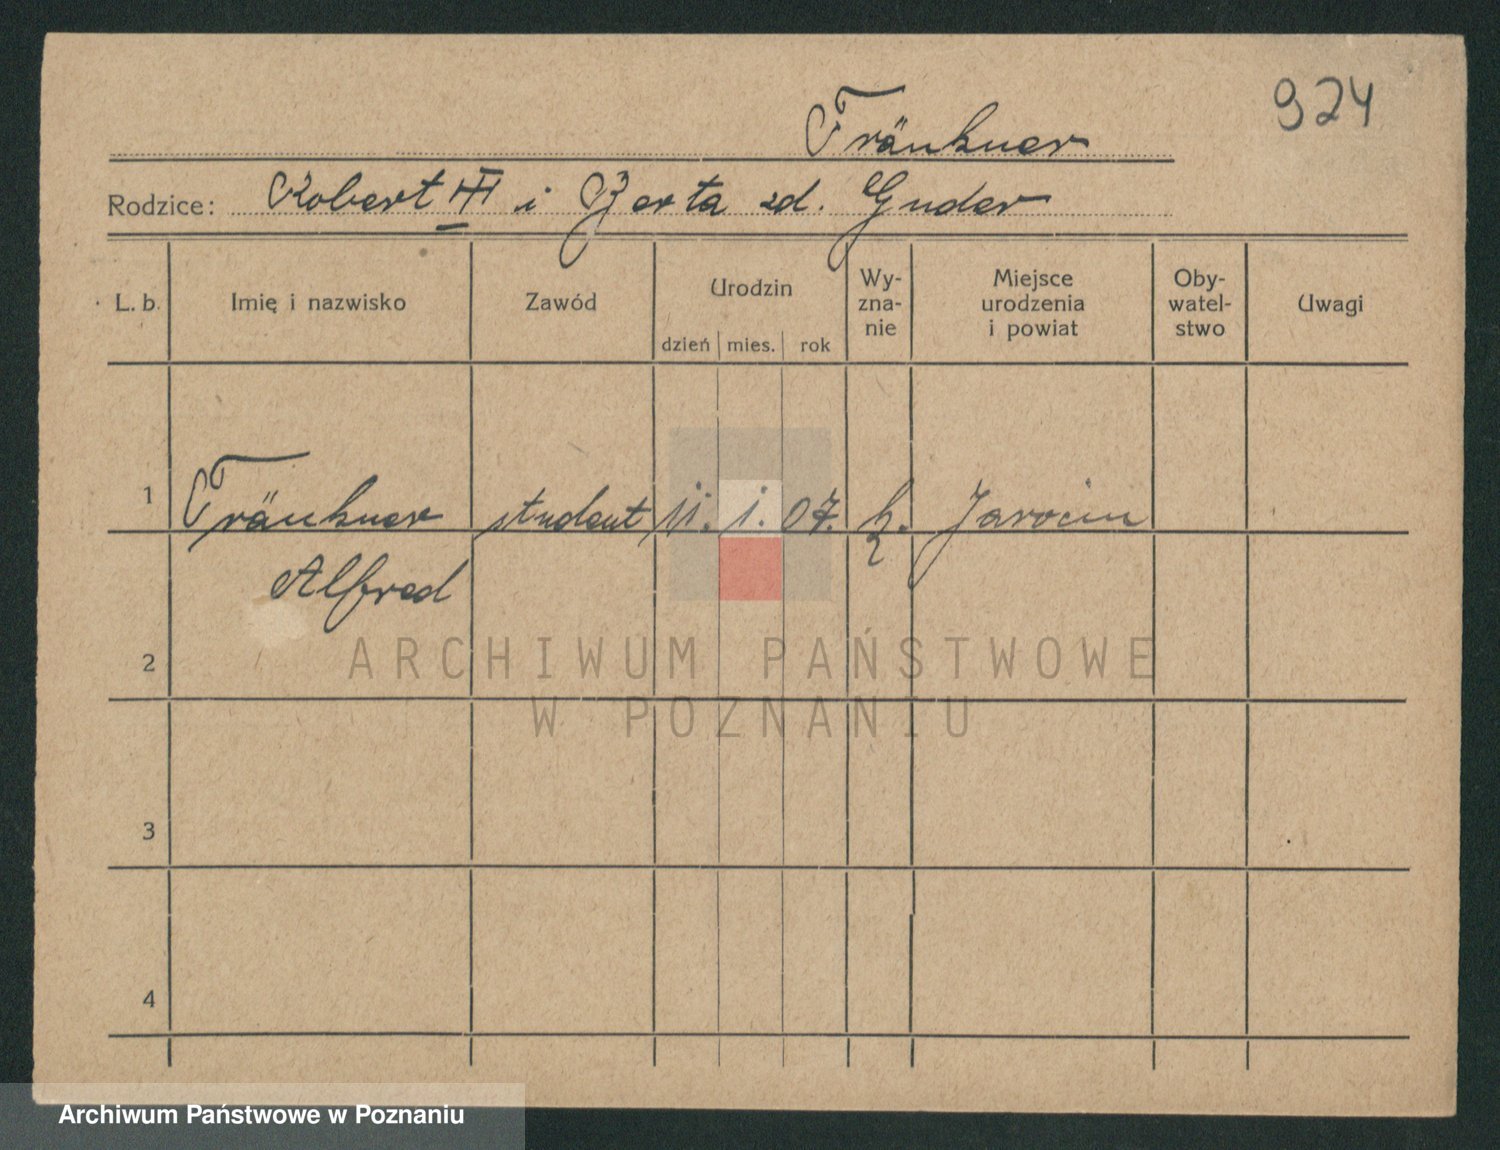 924
Fränkner
Rodzice: Robert III i Berta zd. Guder
L. b. Imię i nazwisko Zawód Urodzin dzień mies. rok Wy-zna-nie Miejsce urodzenia i powiat Oby-watel-stwo Uwagi
1 Fränkner student 11. 1. 07. k. Jarocin
Alfred
2
3
4
ARCHIWUM PAŃSTWOWE
W POZNANIU
Archiwum Państwowe w Poznaniu